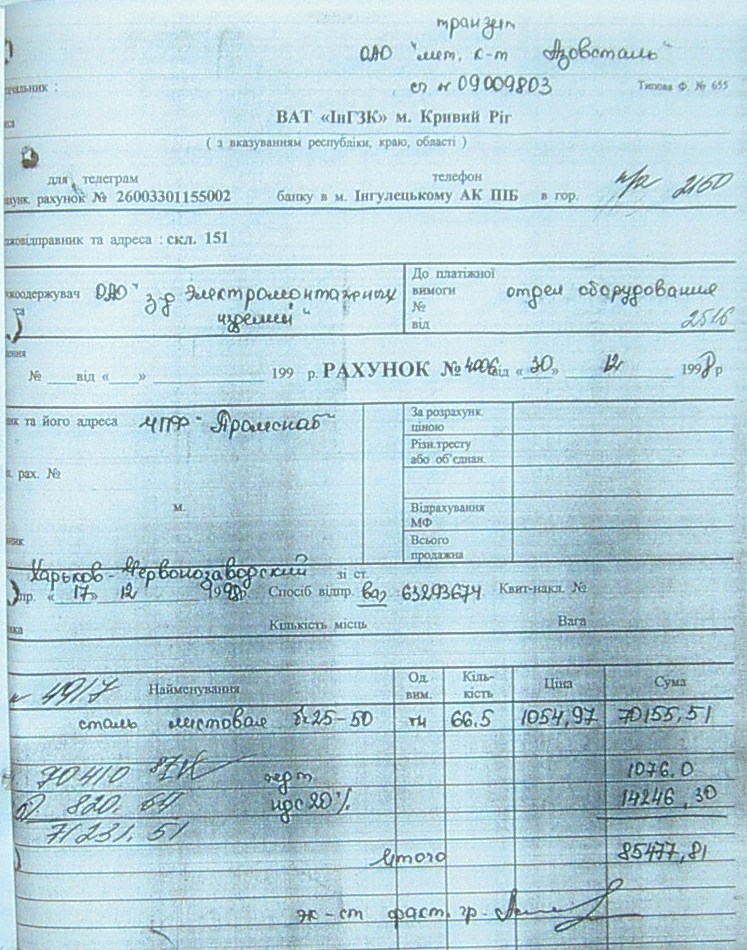 транзит
ОАО "мет. к-т Азовсталь"
сп № 09009803
Типова Ф. № 655
ВАТ «ІнГЗК» м. Кривий Ріг
( з вказуванням республіки, краю, області )
для телеграм телефон
рахунок № 26003301155002 банку в м. Інгулецькому АК ПІБ в гор. 2150
та адреса : скл. 151
ОАО" з-д Электромонтажных
изделий"
До платіжної
вимоги
№
від
отдел оборудования
2516
№ від « » 199 р. РАХУНОК № 4006 від « 30 » 12 1998 р
та його адреса ЧПФ "Промснаб"
рах. №
м.
За розрахунк.
ціною
Різн.тресту
або об'єднан.
Відрахування
МФ
Всього
продажна
Харьков-Червонозаводский зі ст.
« 17 » 12 1998р. Спосіб відпр. ваг 63293674 Квит-накл. №
Кількість місць Вага
4917 Найменування Од. вим. Кіль-кість Ціна Сума
сталь листовая 25-50 тн 66.5 1054,97 70155,51
70410 87 1076.0
820. 64 ндс 20% 14246,30
71231.51
Итого 85477,81
эк-ст факт. гр.